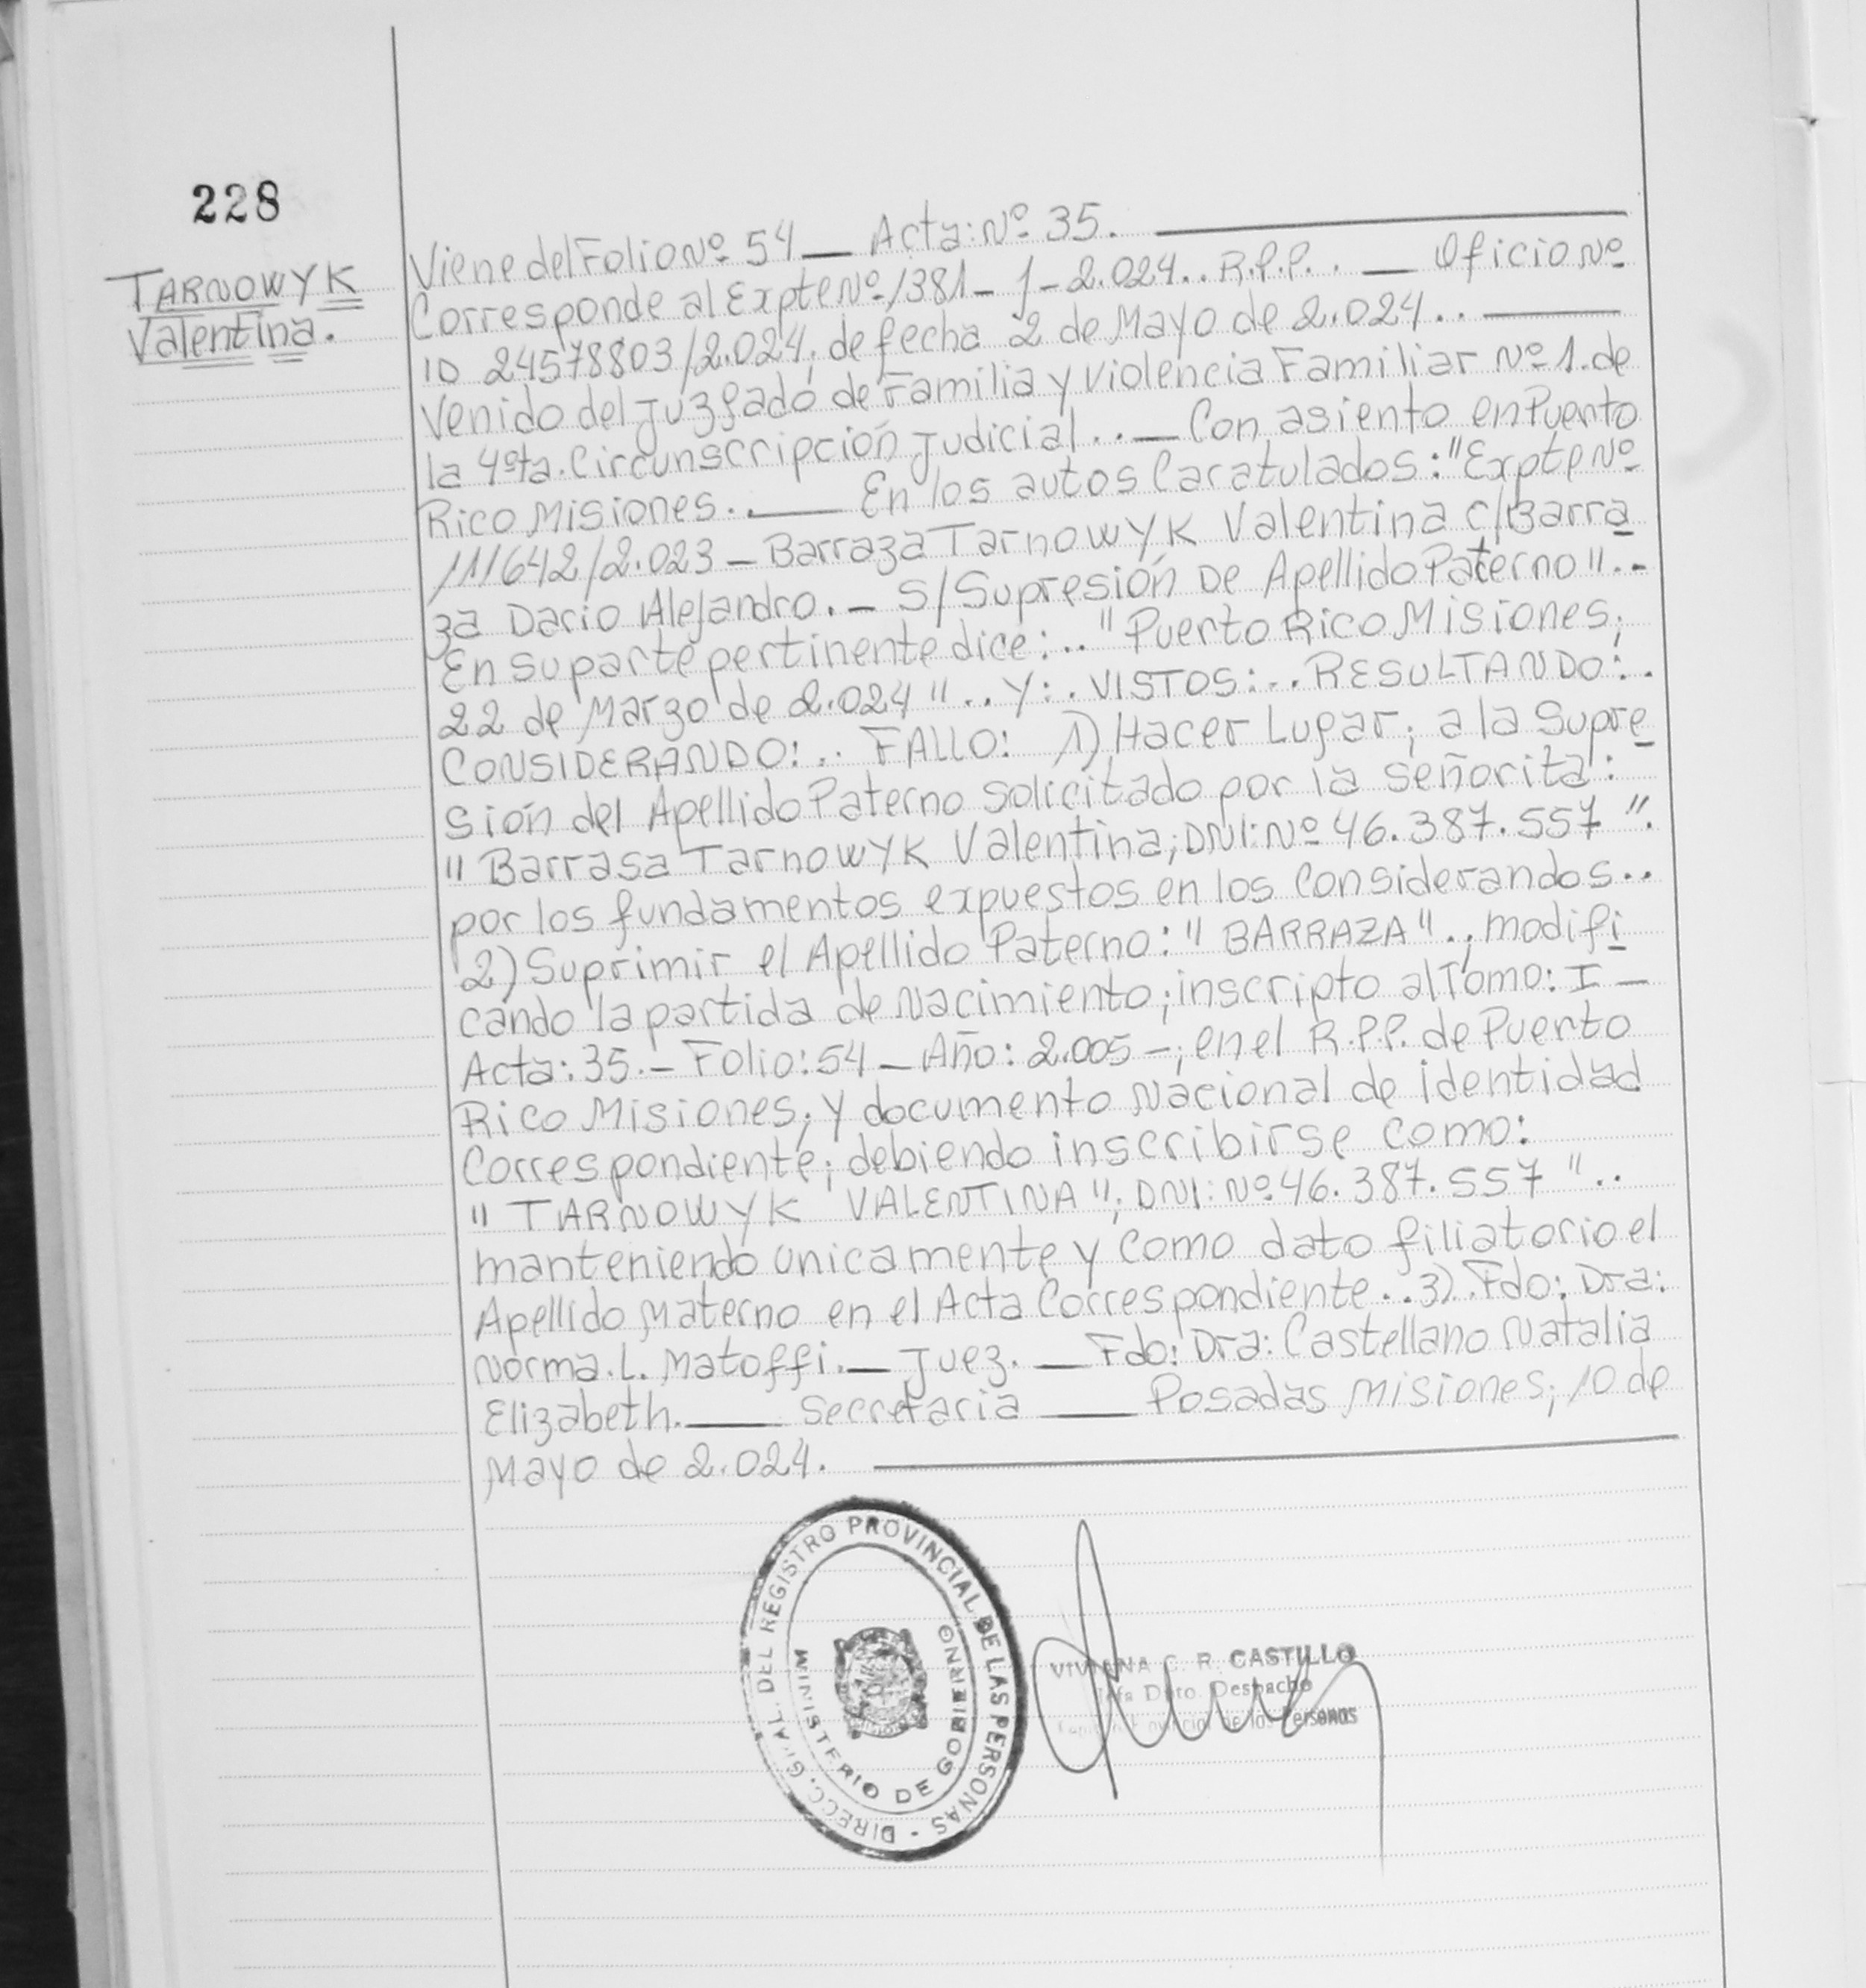 228
TARNOWYK
Valentina.
Viene del Folio Nº 54 — Acta: Nº 35.
Corresponde al Expte Nº 1381-J-2.024.. R.P.P.. — Oficio Nº
ID 24578803/2.024, de fecha 2 de Mayo de 2.024..
Venido del Juzgado de Familia y Violencia Familiar Nº 1. de
la 4º ta. Circunscripción Judicial.. — Con asiento en Puerto
Rico Misiones.. — En los autos Caratulados: "Expte Nº
111642/2.023 - Barraza Tarnowyk Valentina c/Barra
za Dario Alejandro. - S/Supresión De Apellido Paterno"..
En su parte pertinente dice: .. "Puerto Rico Misiones;
22 de Marzo de 2.024".. Y:. VISTOS:.. RESULTANDO:.
CONSIDERANDO:.. FALLO: 1) Hacer Lugar; a la Supre
sión del Apellido Paterno solicitado por la señorita:
"Barrasa Tarnowyk Valentina; DNI: Nº 46.387.557".
por los fundamentos expuestos en los Considerandos..
2) Suprimir el Apellido Paterno: "BARRAZA".; modifi
cando la partida de Nacimiento; inscripto al Tomo: I -
Acta: 35. - Folio: 54 - Año: 2.005 -; en el R.P.P. de Puerto
Rico Misiones; y documento Nacional de identidad
Correspondiente; debiendo inscribirse como:
"TARNOWYK VALENTINA"; DNI: Nº 46.387.557"..
manteniendo unicamente y como dato filiatorio el
Apellido Materno en el Acta Correspondiente.. 3). Fdo: Dra:
Norma. L. Matoffi. — Juez. — Fdo: Dra: Castellano Natalia
Elizabeth. — Secretaria — Posadas Misiones; 10 de
Mayo de 2.024.
DIRECC. GRAL. DEL REGISTRO PROVINCIAL DE LAS PERSONAS -
MINISTERIO DE GOBIERNO
VIVIANA C. R. CASTILLO
Jefa Dpto. Despacho
de las Personas